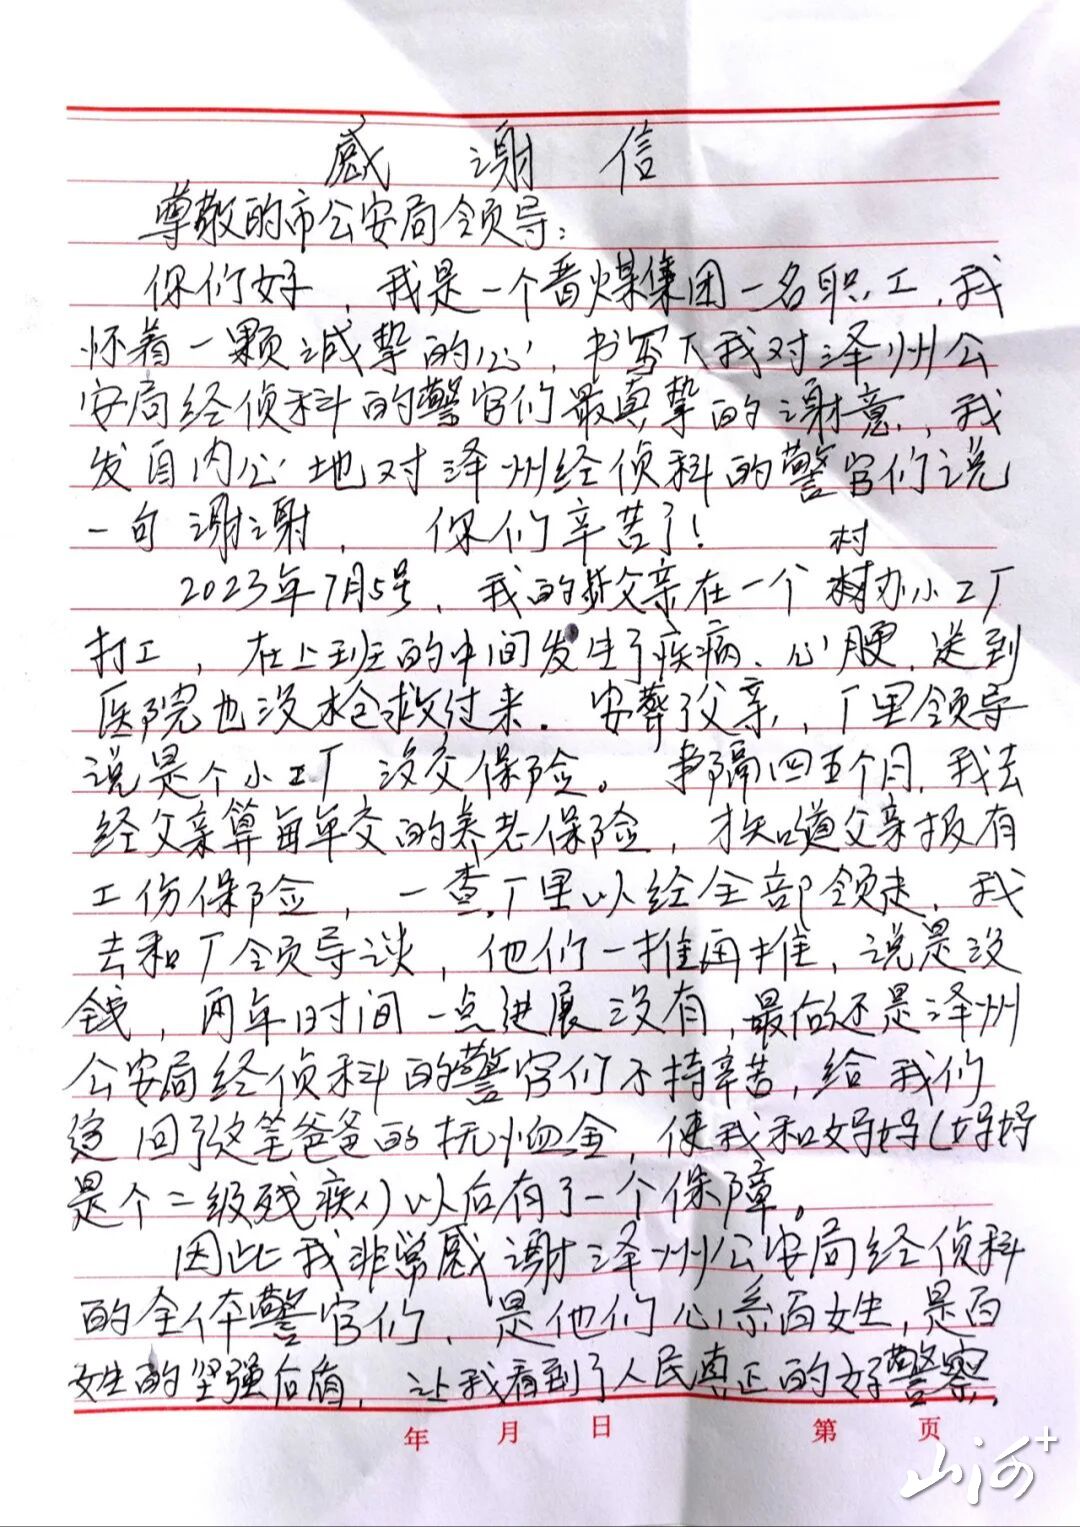 感谢信
尊敬的市公安局领导：
你们好，我是一个晋煤集团一名职工，我
怀着一颗诚挚的心，书写下我对泽州公
安局经侦科的警官们最真挚的谢意，我
发自内心地对泽州经侦科的警官们说
一句谢谢，你们辛苦了！
村
2023年7月5号，我的父亲在一个村办小工厂
打工，在上班的中间发生了疾病、心梗，送到
医院也没抢救过来．安葬了父亲，厂里领导
说是个小工厂没交保险。事隔四五个月，我去
经父亲算每年交的养老保险，才知道父亲报有
工伤保险，一查，厂里以经全部领走，我
去和厂领导谈，他们一推再推，说是没
钱，两年时间一点进展没有，最后还是泽州
公安局经侦科的警官们不持辛苦，给我们
追回了爸爸的抚恤金，使我和妈妈（妈妈
是个二级残疾人）以后有了一个保障。
因此我非常感谢泽州公安局经侦科
的全体警官们，是他们心系百姓，是百
姓的坚强后盾，让我看到了人民真正的好警察，
年 月 日 第 页
山河+